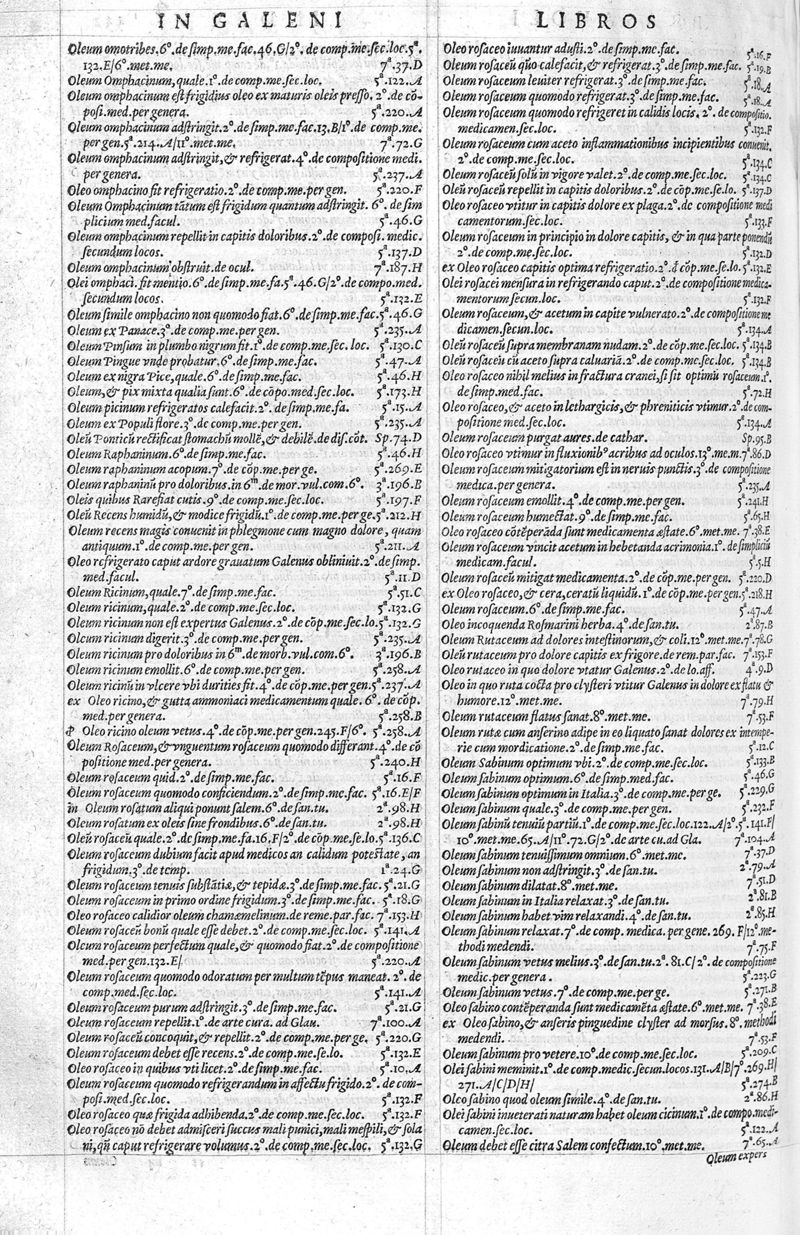 IN GALENI
Oleum omotribes. 6°. de simp. me. fac. 46. G/2°. de comp. me. sec. loc. 5ª.
132. E/6°. met. me. 7ª. 37. D
Oleum Omphacinum, quale. 1°. de comp. me. sec. loc. 5ª. 122. A
Oleum omphacinum est frigidius oleo ex maturis oleis presso. 2°. de cō-
posi. med. per genera. 5ª. 220. A
Oleum omphacinum adstringit. 2°. de simp. me. fac. 13. B/1°. de comp. me.
per gen. 5ª. 214. A/11°. met. me. 7ª. 72. G
Oleum omphacinum adstringit, & refrigerat. 4°. de compositione medi.
per genera. 5ª. 237. A
Oleo omphacino fit refrigeratio. 2°. de comp. me. per gen. 5ª. 220. F
Oleum Omphacinum tātum est frigidum quantum adstringit. 6°. de sim
plicium med. facul. 5ª. 46. G
Oleum omphacinum repellit in capitis doloribus. 2°. de composi. medic.
secundum locos. 5ª. 137. D
Oleum omphacinum obstruit. de ocul. 7ª. 187. H
Olei omphaci. fit mentio. 6°. de simp. me. fa. 5ª. 46. G/2°. de compo. med.
secundum locos. 5ª. 132. E
Oleum simile omphacino non quomodo fiat. 6°. de simp. me. fac. 5ª. 46. G
Oleum ex Panace. 3°. de comp. me. per gen. 5ª. 235. A
Oleum Pinsum in plumbo nigrum fit. 1°. de comp. me. sec. loc. 5ª. 130. C
Oleum Pingue vnde probatur. 6°. de simp. me. fac. 5ª. 47. A
Oleum ex nigra Pice, quale. 6°. de simp. me. fac. 5ª. 46. H
Oleum, & pix mixta qualia sunt. 6°. de cōpo. med. sec. loc. 5ª. 173. H
Oleum picinum refrigeratos calefacit. 2°. de simp. me. fa. 5ª. 15. A
Oleum ex Populi flore. 3°. de comp. me. per gen. 5ª. 235. A
Oleū Ponticū rectificat stomachū mollē, & debilē. de dis. cōt. Sp. 74. D
Oleum Raphaninum. 6°. de simp. me. fac. 5ª. 46. H
Oleum raphaninum acopum. 7°. de cōp. me. per ge. 5ª. 269. E
Oleum raphaninū pro doloribus. in 6ᵐ. de mor. vul. com. 6°. 3ª. 196. B
Oleis quibus Rarefiat cutis. 9°. de comp. me. sec. loc. 5ª. 197. F
Oleū Recens humidū, & modice frigidū. 1°. de comp. me. per ge. 5ª. 212. H
Oleum recens magis conuenit in phlegmone cum magno dolore, quam
antiquum. 1°. de comp. me. per gen. 5ª. 211. A
Oleo refrigerato caput ardore grauatum Galenus obliniuit. 2°. de simp.
med. facul. 5ª. 11. D
Oleum Ricinum, quale. 7°. de simp. me. fac. 5ª. 51. C
Oleum ricinum, quale. 2°. de comp. me. sec. loc. 5ª. 132. G
Oleum ricinum non est expertus Galenus. 2°. de cōp. me. sec. lo. 5ª. 132. G
Oleum ricinum digerit. 3°. de comp. me. per gen. 5ª. 235. A
Oleum ricinum pro doloribus in 6ᵐ. de morb. vul. com. 6°. 3ª. 196. B
Oleum ricinum emollit. 6°. de comp. me. per gen. 5ª. 258. A
Oleum ricinū in vlcere vbi durities fit. 4°. de cōp. me. per gen. 5ª. 237. A
ex Oleo ricino, & gutta ammoniaci medicamentum quale. 6°. de cōp.
med. per genera. 5ª. 258. B
Oleo ricino oleum vetus. 4°. de comp. me. per gen. 245. F/6°. 5ª. 258. A
Oleum Rosaceum, & vnguentum rosaceum quomodo differant. 4°. de cō
positione med. per genera. 5ª. 240. H
Oleum rosaceum quid. 2°. de simp. me. fac. 5ª. 16. F
Oleum rosaceum quomodo conficiendum. 2°. de simp. mc. fac. 5ª. 16. E/F
in Oleum rosatum aliqui ponunt salem. 6°. de san. tu. 2ª. 98. H
Oleum rosatum ex oleis sine frondibus. 6°. de san. tu. 2ª. 98. H
Oleū rosaceū quale. 2°. de simp. me. fa. 16. F/2°. de cōp. me. se. lo. 5ª. 136. C
Oleum rosaceum dubium facit apud medicos an calidum potestate, an
frigidum. 3°. de temp. 1ª. 24. G
Oleum rosaceum tenuis substātiæ, & tepidæ. 3°. de simp. me. fac. 5ª. 21. G
Oleum rosaceum in primo ordine frigidum. 3°. de simp. me. fac. 5ª. 18. G
Oleo rosaceo calidior oleum chamæmelinum. de reme. par. fac. 7ª. 153. H
Oleum rosaceū bonū quale esse debet. 2°. de comp. me. sec. loc. 5ª. 141. A
Oleum rosaceum perfectum quale, & quomodo fiat. 2°. de compositione
med. per gen. 132. E/ 5ª. 220. A
Oleum rosaceum quomodo odoratum per multum tēpus maneat. 2°. de
comp. med. sec. loc. 5ª. 141. A
Oleum rosaceum purum adstringit. 3°. de simp. me. fac. 5ª. 21. G
Oleum rosaceum repellit. 1°. de arte cura. ad Glau. 7ª. 100. A
Oleum rosaceū concoquit, & repellit. 2°. de comp. me. per ge. 5ª. 220. G
Oleum rosaceum debet esse recens. 2°. de comp. me. se. lo. 5ª. 132. E
Oleo rosaceo in quibus vti licet. 2°. de simp. me. fac. 5ª. 10. A
Oleum rosaceum quomodo refrigerandum in affectu frigido. 2°. de com-
posi. med. sec. loc. 5ª. 132. F
Oleo rosaceo quæ frigida adhibenda. 2°. de comp. me. sec. loc. 5ª. 132. F
Oleo rosaceo nō debet admisceri succus mali punici, mali mespili, & sola
ni, qñ caput refrigerare volumus. 2°. de comp. me. sec. loc. 5ª. 132. G
LIBROS
Oleo rosaceo iuuantur adusti. 2°. de simp. me. fac. 5ª. 16. F
Oleum rosaceū qūo calefacit, & refrigerat. 3°. de simp. me. fac. 5ª. 19. B
Oleum rosaceum leuiter refrigerat. 3°. de simp. me. fac. 5ª. 18. A
Oleum rosaceum quomodo refrigerat. 3°. de simp. me. fac. 5ª. 18. A
Oleum rosaceum quomodo refrigeret in calidis locis. 2°. de compositio.
medicamen. sec. loc. 5ª. 132. F
Oleum rosaceum cum aceto inflammationibus incipientibus conuenit.
2°. de comp. me. sec. loc. 5ª. 134. C
Oleum rosaceū solū in vigore valet. 2°. de comp. me. sec. loc. 5ª. 134. C
Oleū rosaceū repellit in capitis doloribus. 2°. de cōp. me. se. lo. 5ª. 137. D
Oleo rosaceo vtitur in capitis dolore ex plaga. 2°. de compositione medi
camentorum. sec. loc. 5ª. 133. F
Oleum rosaceum in principio in dolore capitis, & in qua parte ponendū
2°. de comp. me. sec. loc. 5ª. 132. D
ex Oleo rosaceo capitis optima refrigeratio. 2°. d cōp. me. se. lo. 5ª. 132. E
Olei rosacei mensura in refrigerando caput. 2°. de compositione medica-
mentorum secun. loc. 5ª. 132. F
Oleum rosaceum, & acetum in capite vulnerato. 2°. de compositione me
dicamen. secun. loc. 5ª. 134. A
Oleū rosaceū supra membranam nudam. 2°. de cōp. me. sec. loc. 5ª. 134. B
Oleū rosaceū cū aceto supra caluariā. 2°. de comp. me. sec. loc. 5ª. 134. B
Oleo rosaceo nihil melius in fractura cranei, si sit optimū rosaceum. 1°.
de simp. med. fac. 5ª. 72. H
Oleo rosaceo, & aceto in lethargicis, & phreniticis vtimur. 2°. de com-
positione med. sec. loc. 5ª. 134. A
Oleum rosaceum purgat aures. de cathar. Sp. 95. B
Oleo rosaceo vtimur in fluxionib° acribus ad oculos. 13°. me. m. 7ª. 86. D
Oleum rosaceum mitigatorium est in neruis punctis. 3°. de compositione
medica. per genera. 5ª. 235. A
Oleum rosaceum emollit. 4°. de comp. me. per gen. 5ª. 241. H
Oleum rosaceum humectat. 9°. de simp. me. fac. 5ª. 65. H
Oleo rosaceo cōtēperāda sunt medicamenta æstate. 6°. met. me. 7ª. 38. E
Oleum rosaceum vincit acetum in hebetanda acrimonia. 1°. de simpliciū
medicam. facul. 5ª. 5. H
Oleum rosaceū mitigat medicamenta. 2°. de cōp. me. per gen. 5ª. 220. D
ex Oleo rosaceo, & cera, ceratū liquidū. 1°. de cōp. me. per gen. 5ª. 218. H
Oleum rosaceum. 6°. de simp. me. fac. 5ª. 47. A
Oleo incoquenda Rosmarini herba. 4°. de san. tu. 2ª. 87. B
Oleum Rutaceum ad dolores intestinorum, & coli. 12°. met. me. 7ª. 78. G
Oleū rutaceum pro dolore capitis ex frigore. de rem. par. fac. 7ª. 153. F
Oleo rutaceo in quo dolore vtatur Galenus. 2°. de lo. aff. 4ª. 9. D
Oleo in quo ruta cocta pro clysteri vtitur Galenus in dolore ex flatu &
humore. 12°. met. me. 7ª. 79. H
Oleum rutaceum flatus sanat. 8°. met. me. 7ª. 53. F
Oleum rutæ cum anserino adipe in eo liquato sanat dolores ex intempe-
rie cum mordicatione. 2°. de simp. me. fac. 5ª. 12. C
Oleum Sabinum optimum vbi. 2°. de comp. me. sec. loc. 5ª. 133. B
Oleum sabinum optimum. 6°. de simp. med. fac. 5ª. 46. G
Oleum sabinum optimum in Italia. 3°. de comp. me. per ge. 5ª. 229. G
Oleum sabinum quale. 3°. de comp. me. per gen. 5ª. 232. F
Oleum sabinū tenuiū partiū. 1°. de comp. me. sec. loc. 122. A/2°. 5ª. 141. F/
10°. met. me. 65. A/11°. 72. G/2°. de arte cu. ad Gla. 7ª. 104. A
Oleum sabinum tenuissimum omnium. 6°. met. me. 7ª. 37. D
Oleum sabinum non adstringit. 3°. de san. tu. 2ª. 79. A
Oleum sabinum dilatat. 8°. met. me. 7ª. 51. D
Oleum sabinum in Italia relaxat. 3°. de san. tu. 2ª. 81. B
Oleum sabinum habet vim relaxandi. 4°. de san. tu. 2ª. 85. H
Oleum sabinum relaxat. 7°. de comp. medica. per gene. 269. F/12°. me-
thodi medendi. 7ª. 75. F
Oleum sabinum vetus melius. 3°. de san. tu. 2ª. 81. C/2°. de compositione
medic. per genera. 5ª. 223. G
Oleum sabinum vetus. 7°. de comp. me. per ge. 5ª. 271. B
Oleo sabino contēperanda sunt medicamēta æstate. 6°. met. me. 7ª. 38. E
ex Oleo sabino, & anseris pinguedine clyster ad morsus. 8°. methodi
medendi. 7ª. 53. F
Oleum sabinum pro vetere. 10°. de comp. me. sec. loc. 5ª. 209. C
Olei sabini meminit. 1°. de comp. medic. secun. locos. 131. A/B/7°. 269. H/
271. A/C/D/H/ 5ª. 274. B
Oleo sabino quod oleum simile. 4°. de san. tu. 2ª. 86. H
Olei sabini inueterati naturam habet oleum cicinum. 1°. de compo. medi-
camen. sec. loc. 5ª. 122. A
Oleum debet esse citra Salem confectum. 10°. met. me. 7ª. 65. A
Oleum expers